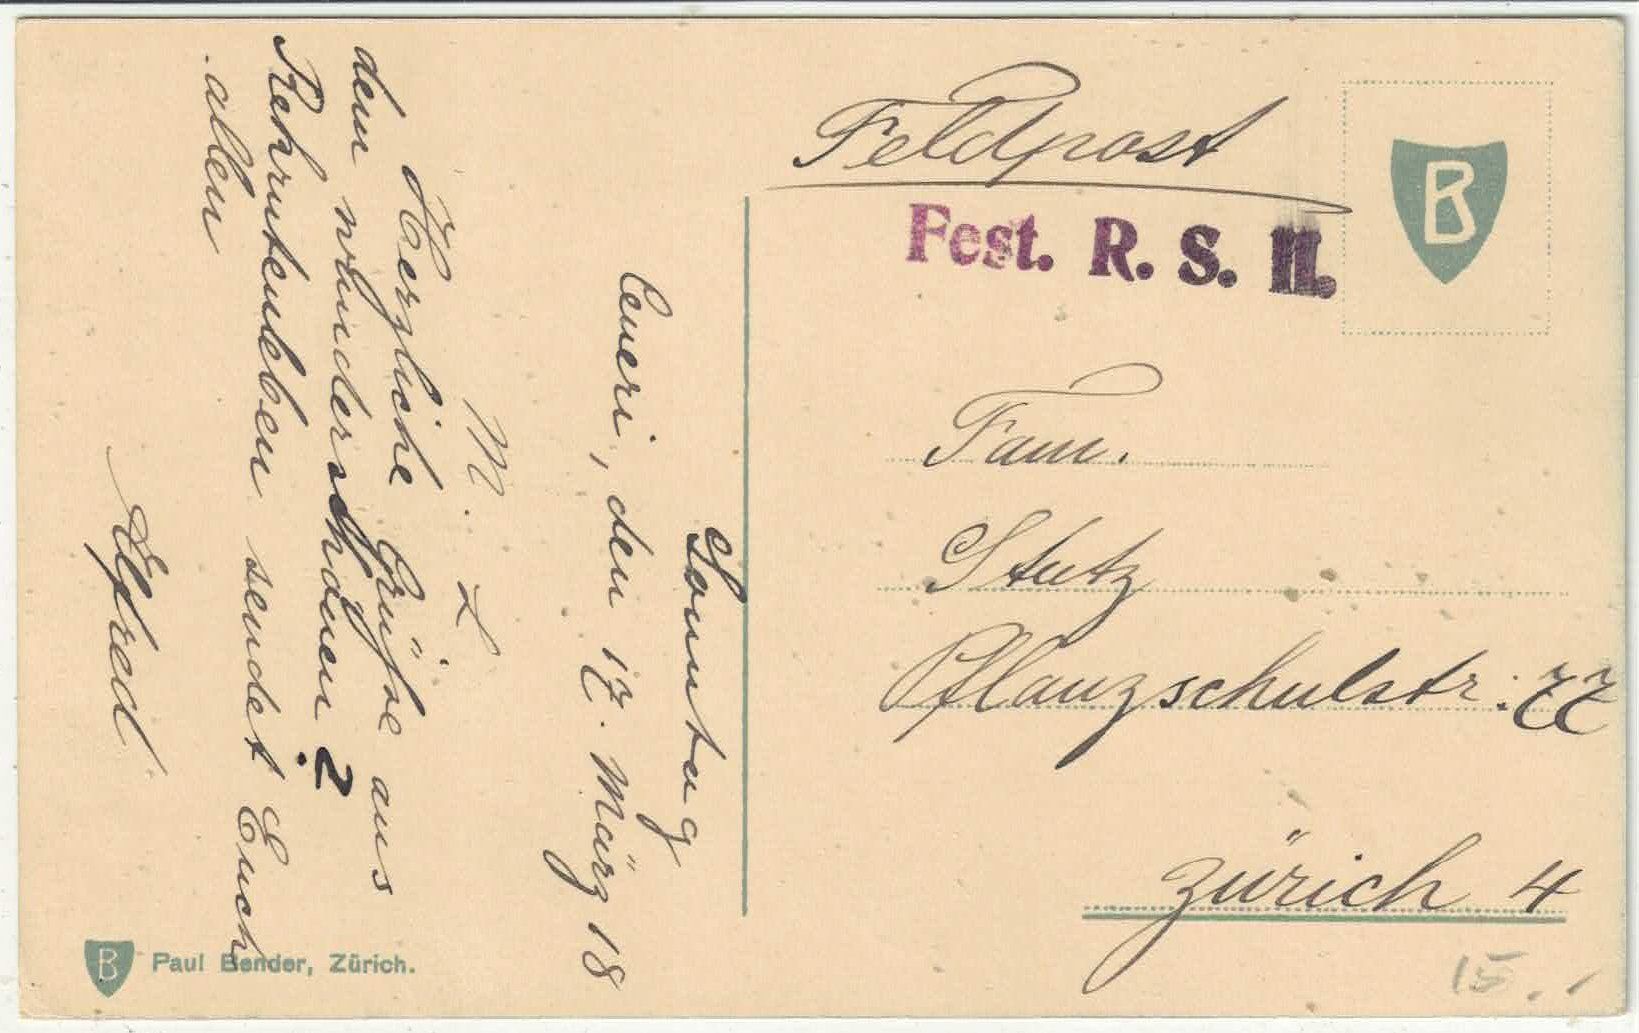 Feldpost
Fest. R. S. II.
B
Fam.
Stutz
Pflanzschulstr: 77
Zürich 4
15.
Sonntag
Ceneri, den 17. März 18
M. L.
Herzliche Grüße aus
dem wunderschönen?
Rehrutenleben sendet Euch
allen
Alfred
B Paul Bender, Zürich.